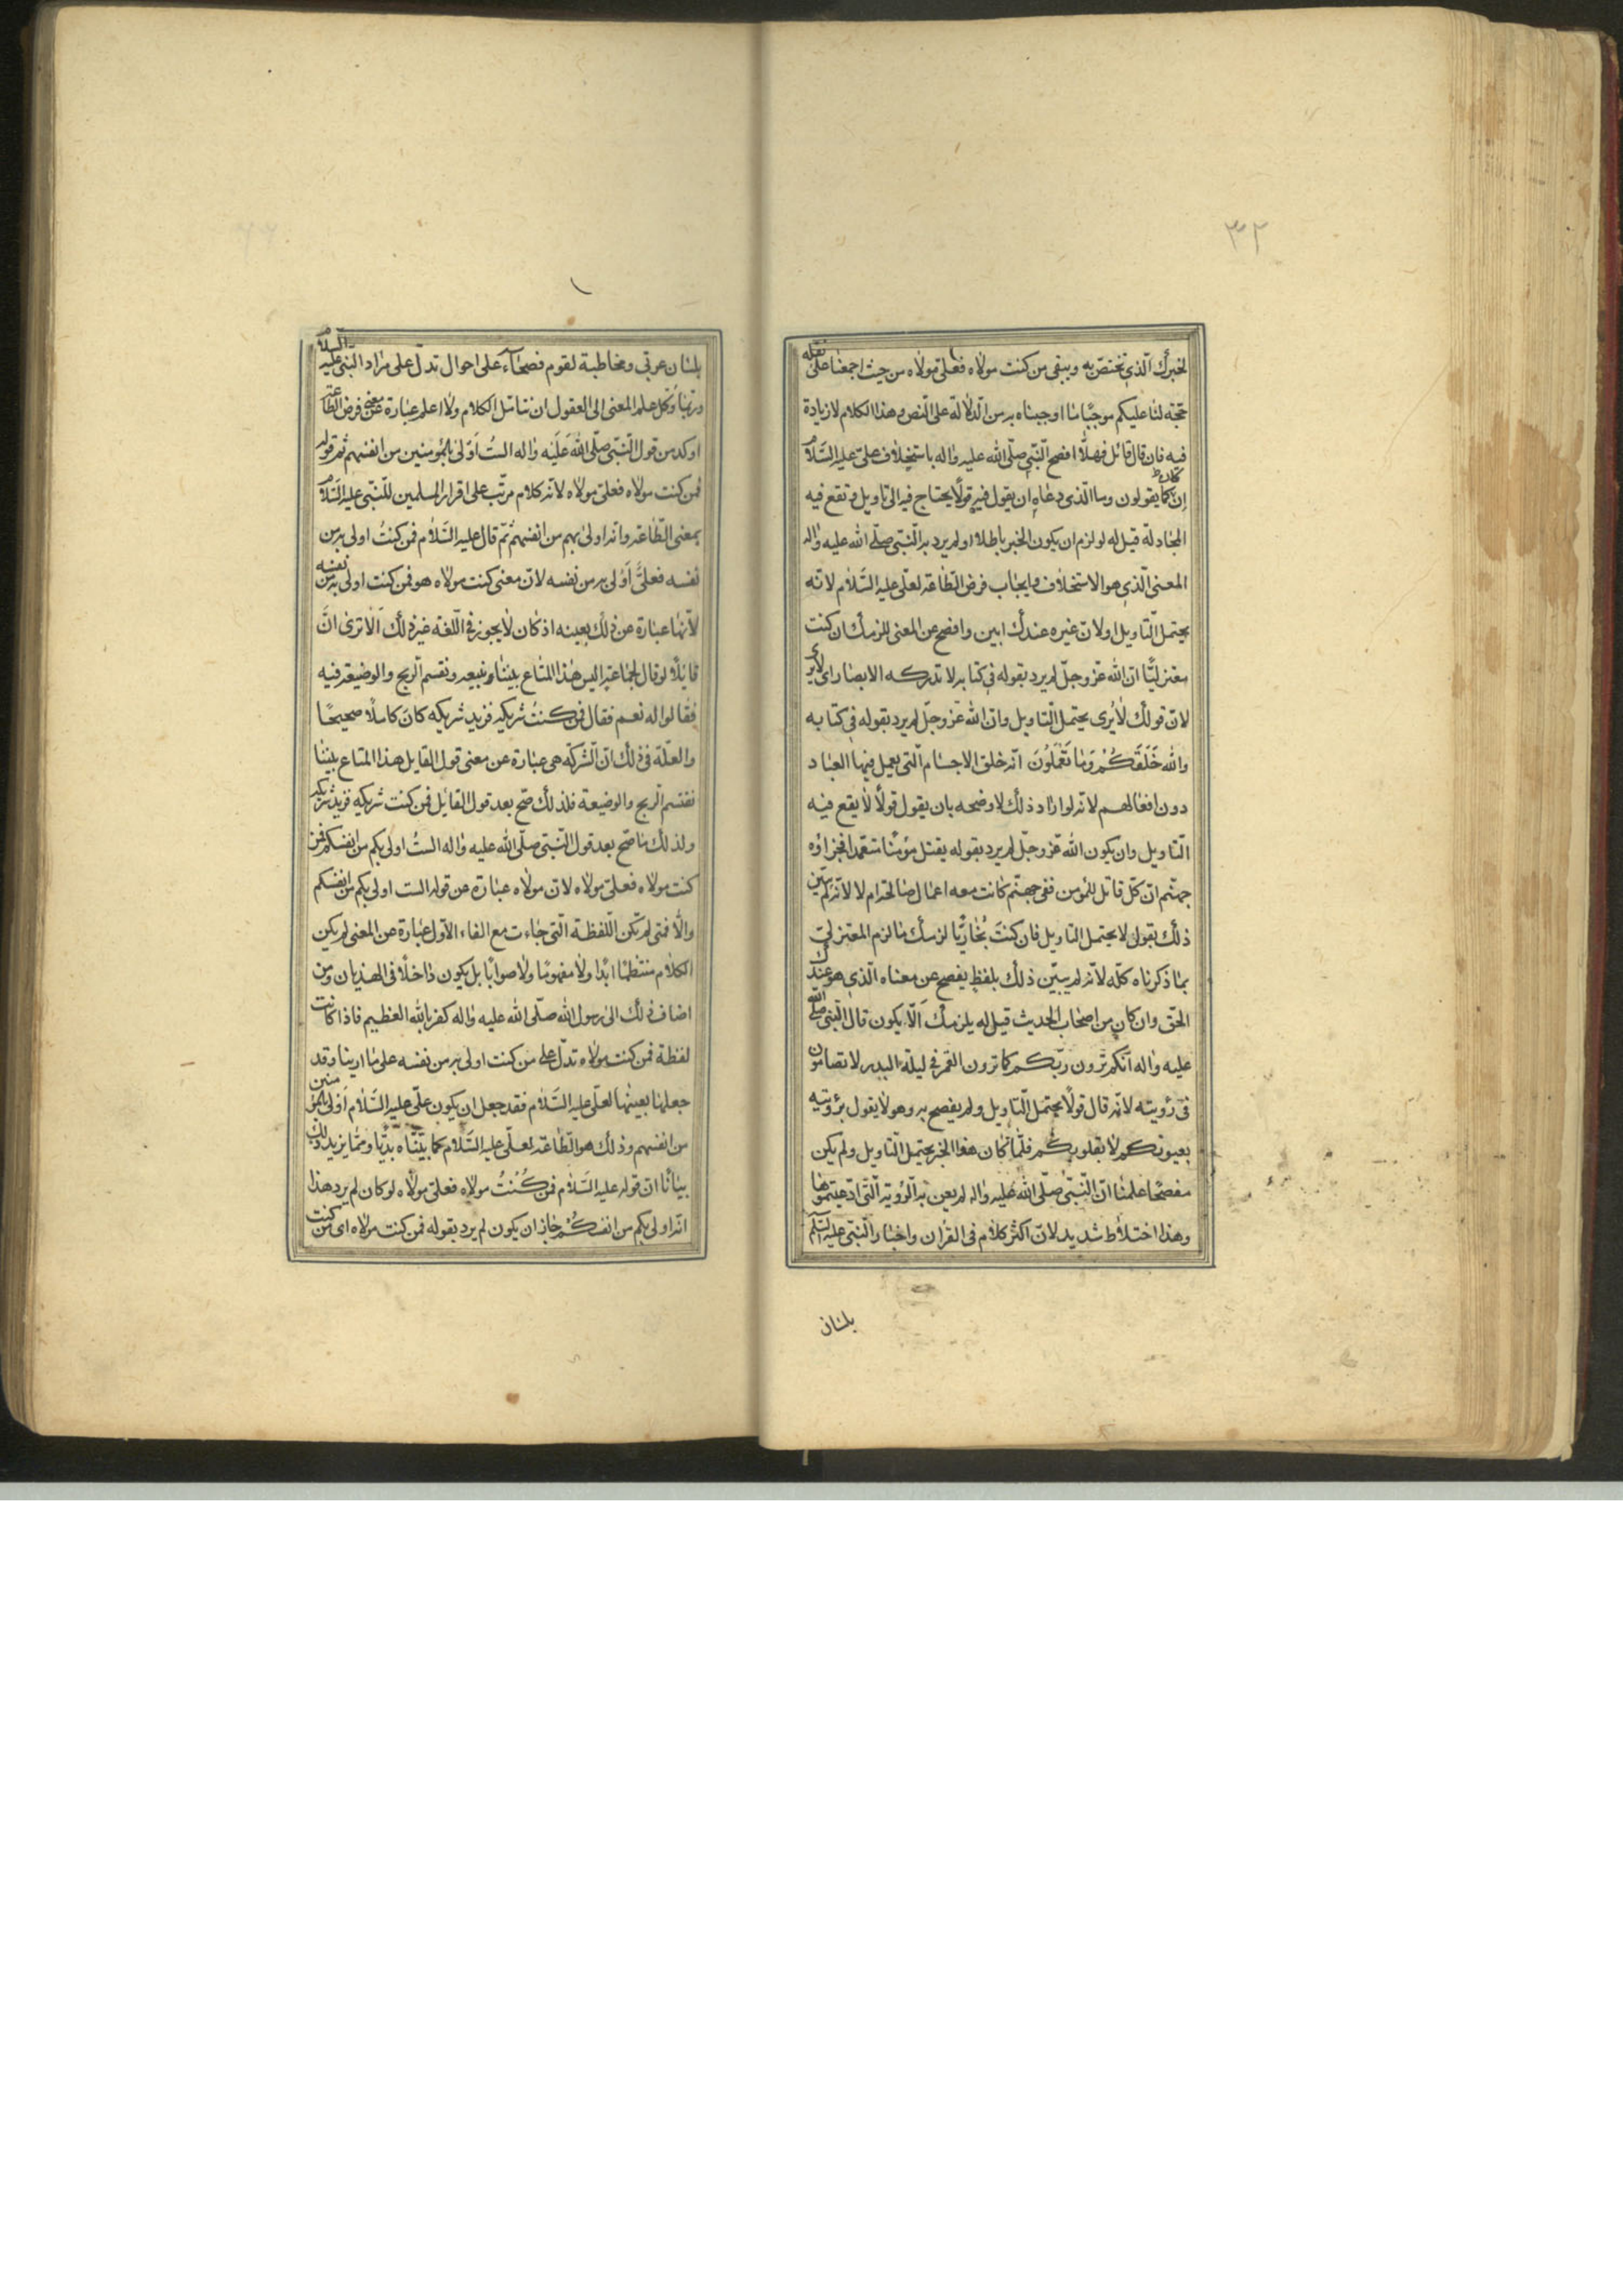 ٣٢
لخبرك الّذي تختصّ به ويبقى من كنت مولاه فعلىّ مولاه من حيث اجمعنا على نقله
حجّة لنا عليكم موجبًا ما اوجبناه به من الدّلالة على النّص وهذا الكلام لا زيادة
فيه فان قال قائل فهلّا افصح النّبى صلّى الله عليه واله باستخلاف علىّ عليه السّلام
ان كان كما يقولون وما الّذى دعاه ان يقول فيه قولًا يحتاج فيه الى تاويل وتقع فيه
المجادلة قيل له لو لزم ان يكون الخبر باطلا او لم يرد به النّبى صلّى الله عليه واله
المعنى الّذى هو الاستخلاف وايجاب فرض الطّاعة لعلّى عليه السّلام لانّه
يحتمل التّاويل او لان غيره عندك ابين وافصح عن المعنى للزمك ان كنت
معتزليًّا انّ الله عزّ وجلّ لم يرد بقوله فى كتابه لا تدركه الابصار اى لا يرى
لانّ قولك لا يرى يحتمل التّاويل وانّ الله عزّ وجلّ لم يرد بقوله فى كتابه
والله خَلَقَكُمْ وَمَا تَعْمَلُونَ انّه خلق الاجسام الّتى يعمل فيها العباد
دون افعالهم لانّه لو اراد ذلك لاوضحه بان يقول قولًا لا يقع فيه
التّاويل وان يكون الله عزّ وجلّ لم يرد بقوله يقتل مؤمنًا متعمّدا فجزاؤه
جهنّم انّ كلّ قاتل للمؤمن ففى جهنّم كانت معه اعمال صالحة ام لا لانّه لم يبيّن
ذلك بقول لا يحتمل التاويل فان كنتَ نُجّاريًّا لزمك ما لزم المعتزلى
بما ذكرناه كلّه لانّه لم يبيّن ذلك بلفظٍ يفصح عن معناه الّذى هو عندك
الحّق وان كان من اصحاب الحديث قيل له يلزمك اَلّا يكون قال النّبى صلّى الله
عليه واله انّكم ترون ربّكم كما ترون القمر فى ليلة البدر لا تضامّون
فى رؤيته لانّه قال قولًا يحتمل التّاويل ولم يفصح به وهو لا يقول برؤيته
بعيونكم لا بقلوبكم فلمّا كان هذا الخبر يحتمل التّاويل ولم يكن
مفصحًا علمنا انّ النّبىّ صلّى الله عليه واله لم يعن به الرّؤية الّتى ادّعيتموها
وهذا اختلاط شديد لانّ اكثر كلام فى القران واخبار النّبى عليه السّلم
بلسان
بلسان عربّى ومخاطبة لقوم فصحاء على احوال تدلّ على مراد النّبى عليه السّلام
وربّما وكل علم المعنى الى العقول ان تتامّل الكلام ولا اعلم عبارة عن معنى فرض الطّاعة
اوكد من قول النّبّى صلّى اللهُ عَلَيْه واله الستُ اَوْلى بالمؤمنين من انفسهم ثم قوله
فمن كنت مولاه فعلىّ مولاه لانّه كلام مرتّب على اقرار المسلمين للنّبّى عليه السّلام
بمعنى الطّاعة وانّه اولىٰ بهم من انفسهم ثمّ قال عليه السّلام فمن كنتُ اولى به من
نفسه فعلىٌّ اَوْلى به من نفسه لانّ معنى كنت مولاه هو فمن كنت اولى به من نفسه
لانّها عبارة عن ذلك بعينه اذ كان لا يجوز فى اللّغة غير ذلك اَلا ترى انَّ
قايلًا لو قال لجماعة اليس هذا المتاع بيننا نبيعه ونقسم الرّبح والوضيعة فيه
فقالوا له نعم فقال فمن كنتُ شريكه فزيد شريكه كان كاملًا صحيحًا
والعلّة فى ذلك انّ الشّركة هى عبارة عن معنى قول القايل هذا المتاع بيننا
نقتسم الرّبح والوضيعة فلذلك صحّ بعد قول القائل فمن كنت شريكه فزيد شريكه
ولذلك ما صّح بعد قول النّبّى صلّى الله عليه واله الستُ اولى بكم من انفسكم فمن
كنت مولاه فعلىّ مولاه لانّ مولاه عبارة عن قوله الست اولى بكم من انفسكم
والّا فمتى لم تكن اللّفظة الّتى جاءت مع الفاء الاوّل عبارة عن المعنى لم يكن
الكلام منتظمًا ابدًا ولا مفهومًا ولا صوابًا بل يكون داخلًا فى الهذيان ومن
اضاف ذلك الى رسول الله صلّى الله عليه واله كفر بالله العظيم فاذا كانت
لفظة فمن كنت مولاه تدلّ على من كنت اولى به من نفسه على ما ارينا وقد
جعلها بعينها لعلّى عليه السّلام فقد جعل ان يكون علّى عليه السّلام اَوْلى بالمؤمنين
من انفسهم وذلك هو الطّاعة لعلّى عليه السّلام كما بيّنّاه بديًّا وممّا يزيد ذلك
بيانًا انّ قوله عليه السّلام فمن كُنْتُ مولاه فعلىّ مولاه لو كان لم يرد هذا
انّه اولى بكم من انفسكم جاز ان يكون لم يرد بقوله فمن كنت مولاه اى من كنت